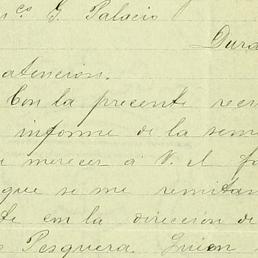 cos G. Palacio
Dura
atención.
Con la presente
informe de la sem
merecer á V. el fa
que se me remitan
te con la direccion de
Pesquera. Quien